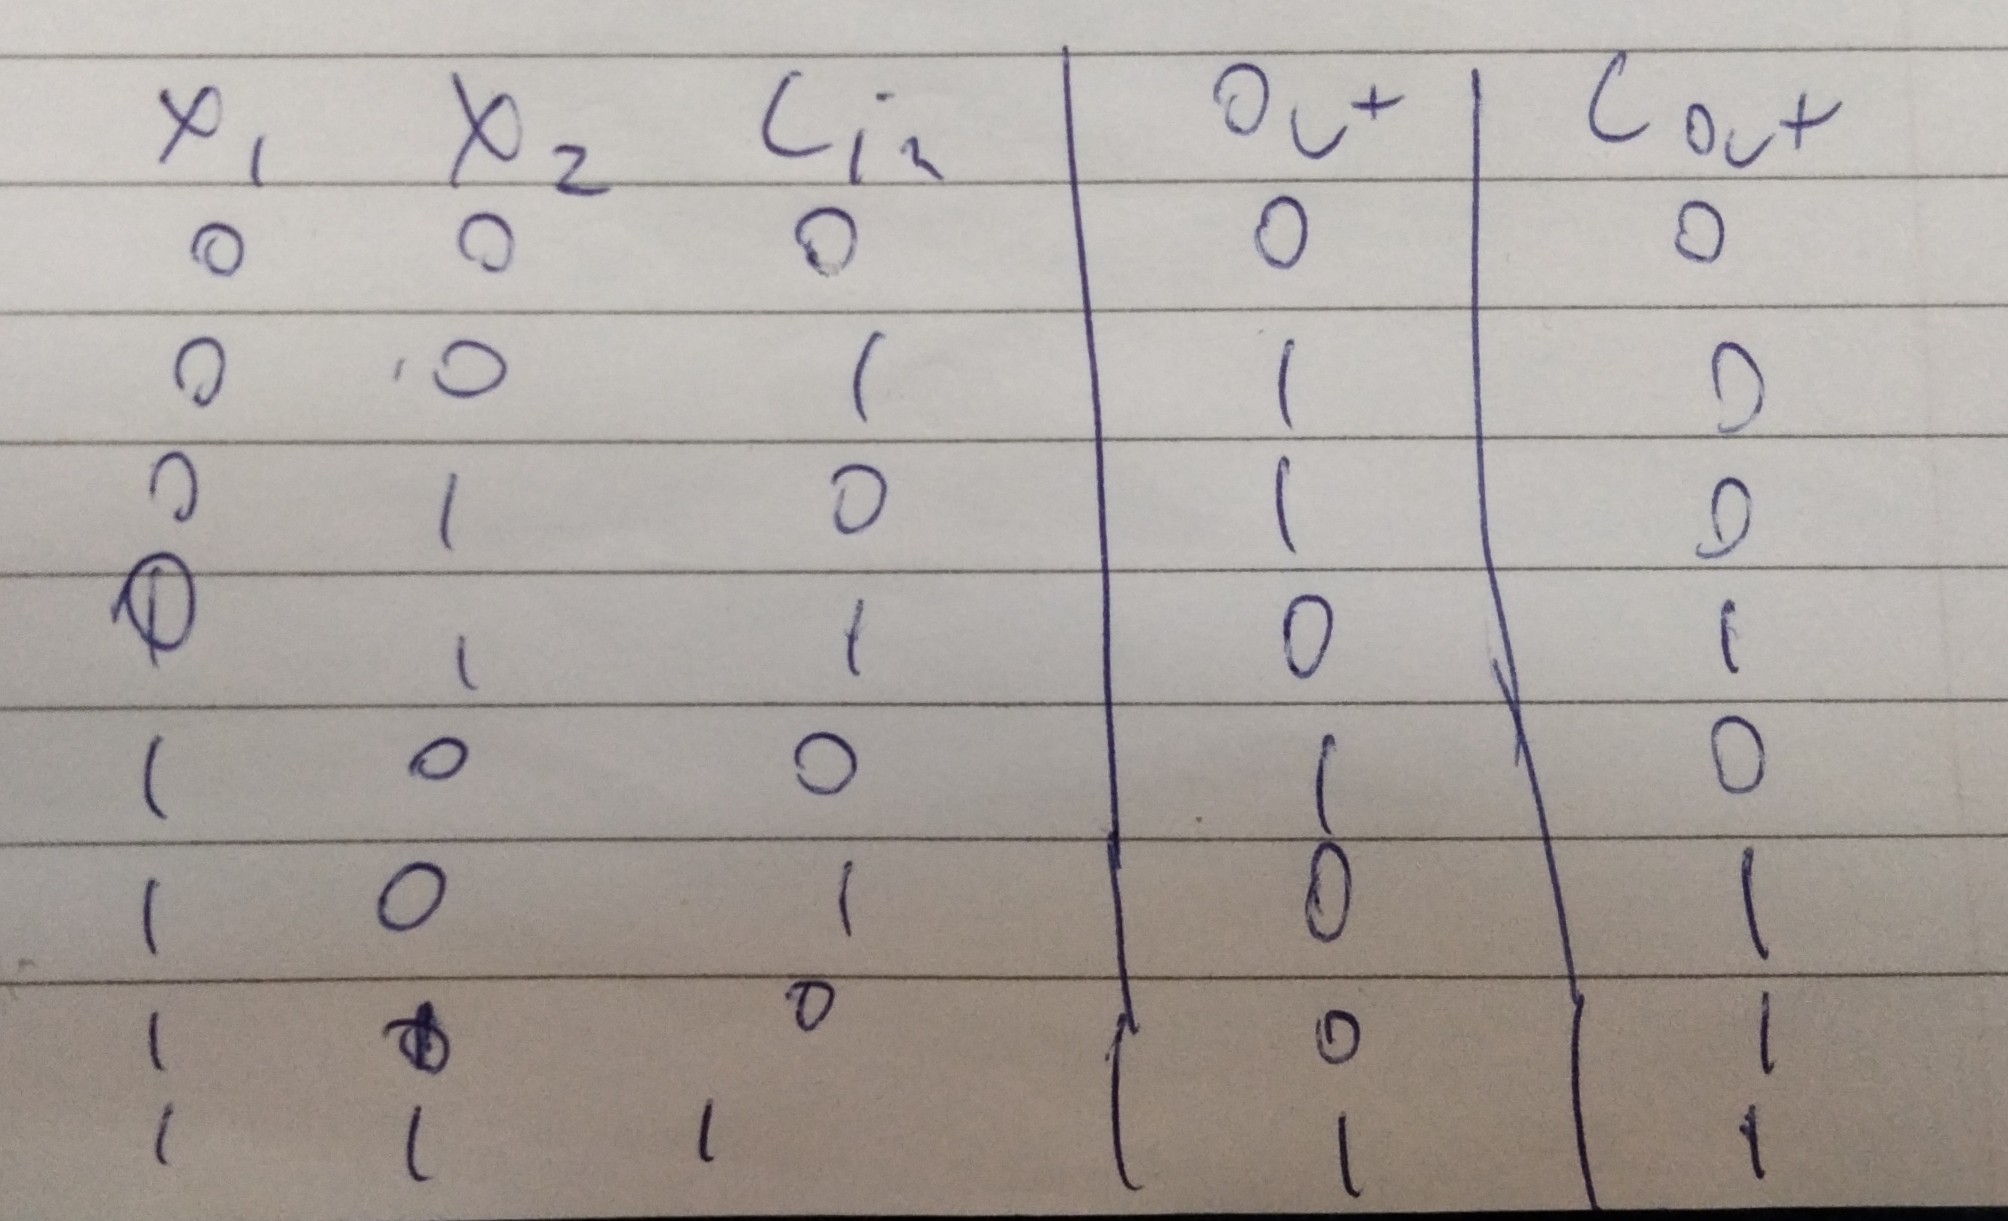 X1 X2 Cin Out Cout
0 0 0 0 0
0 0 1 1 0
0 1 0 1 0
0 1 1 0 1
1 0 0 1 0
1 0 1 0 1
1 1 0 0 1
1 1 1 1 1